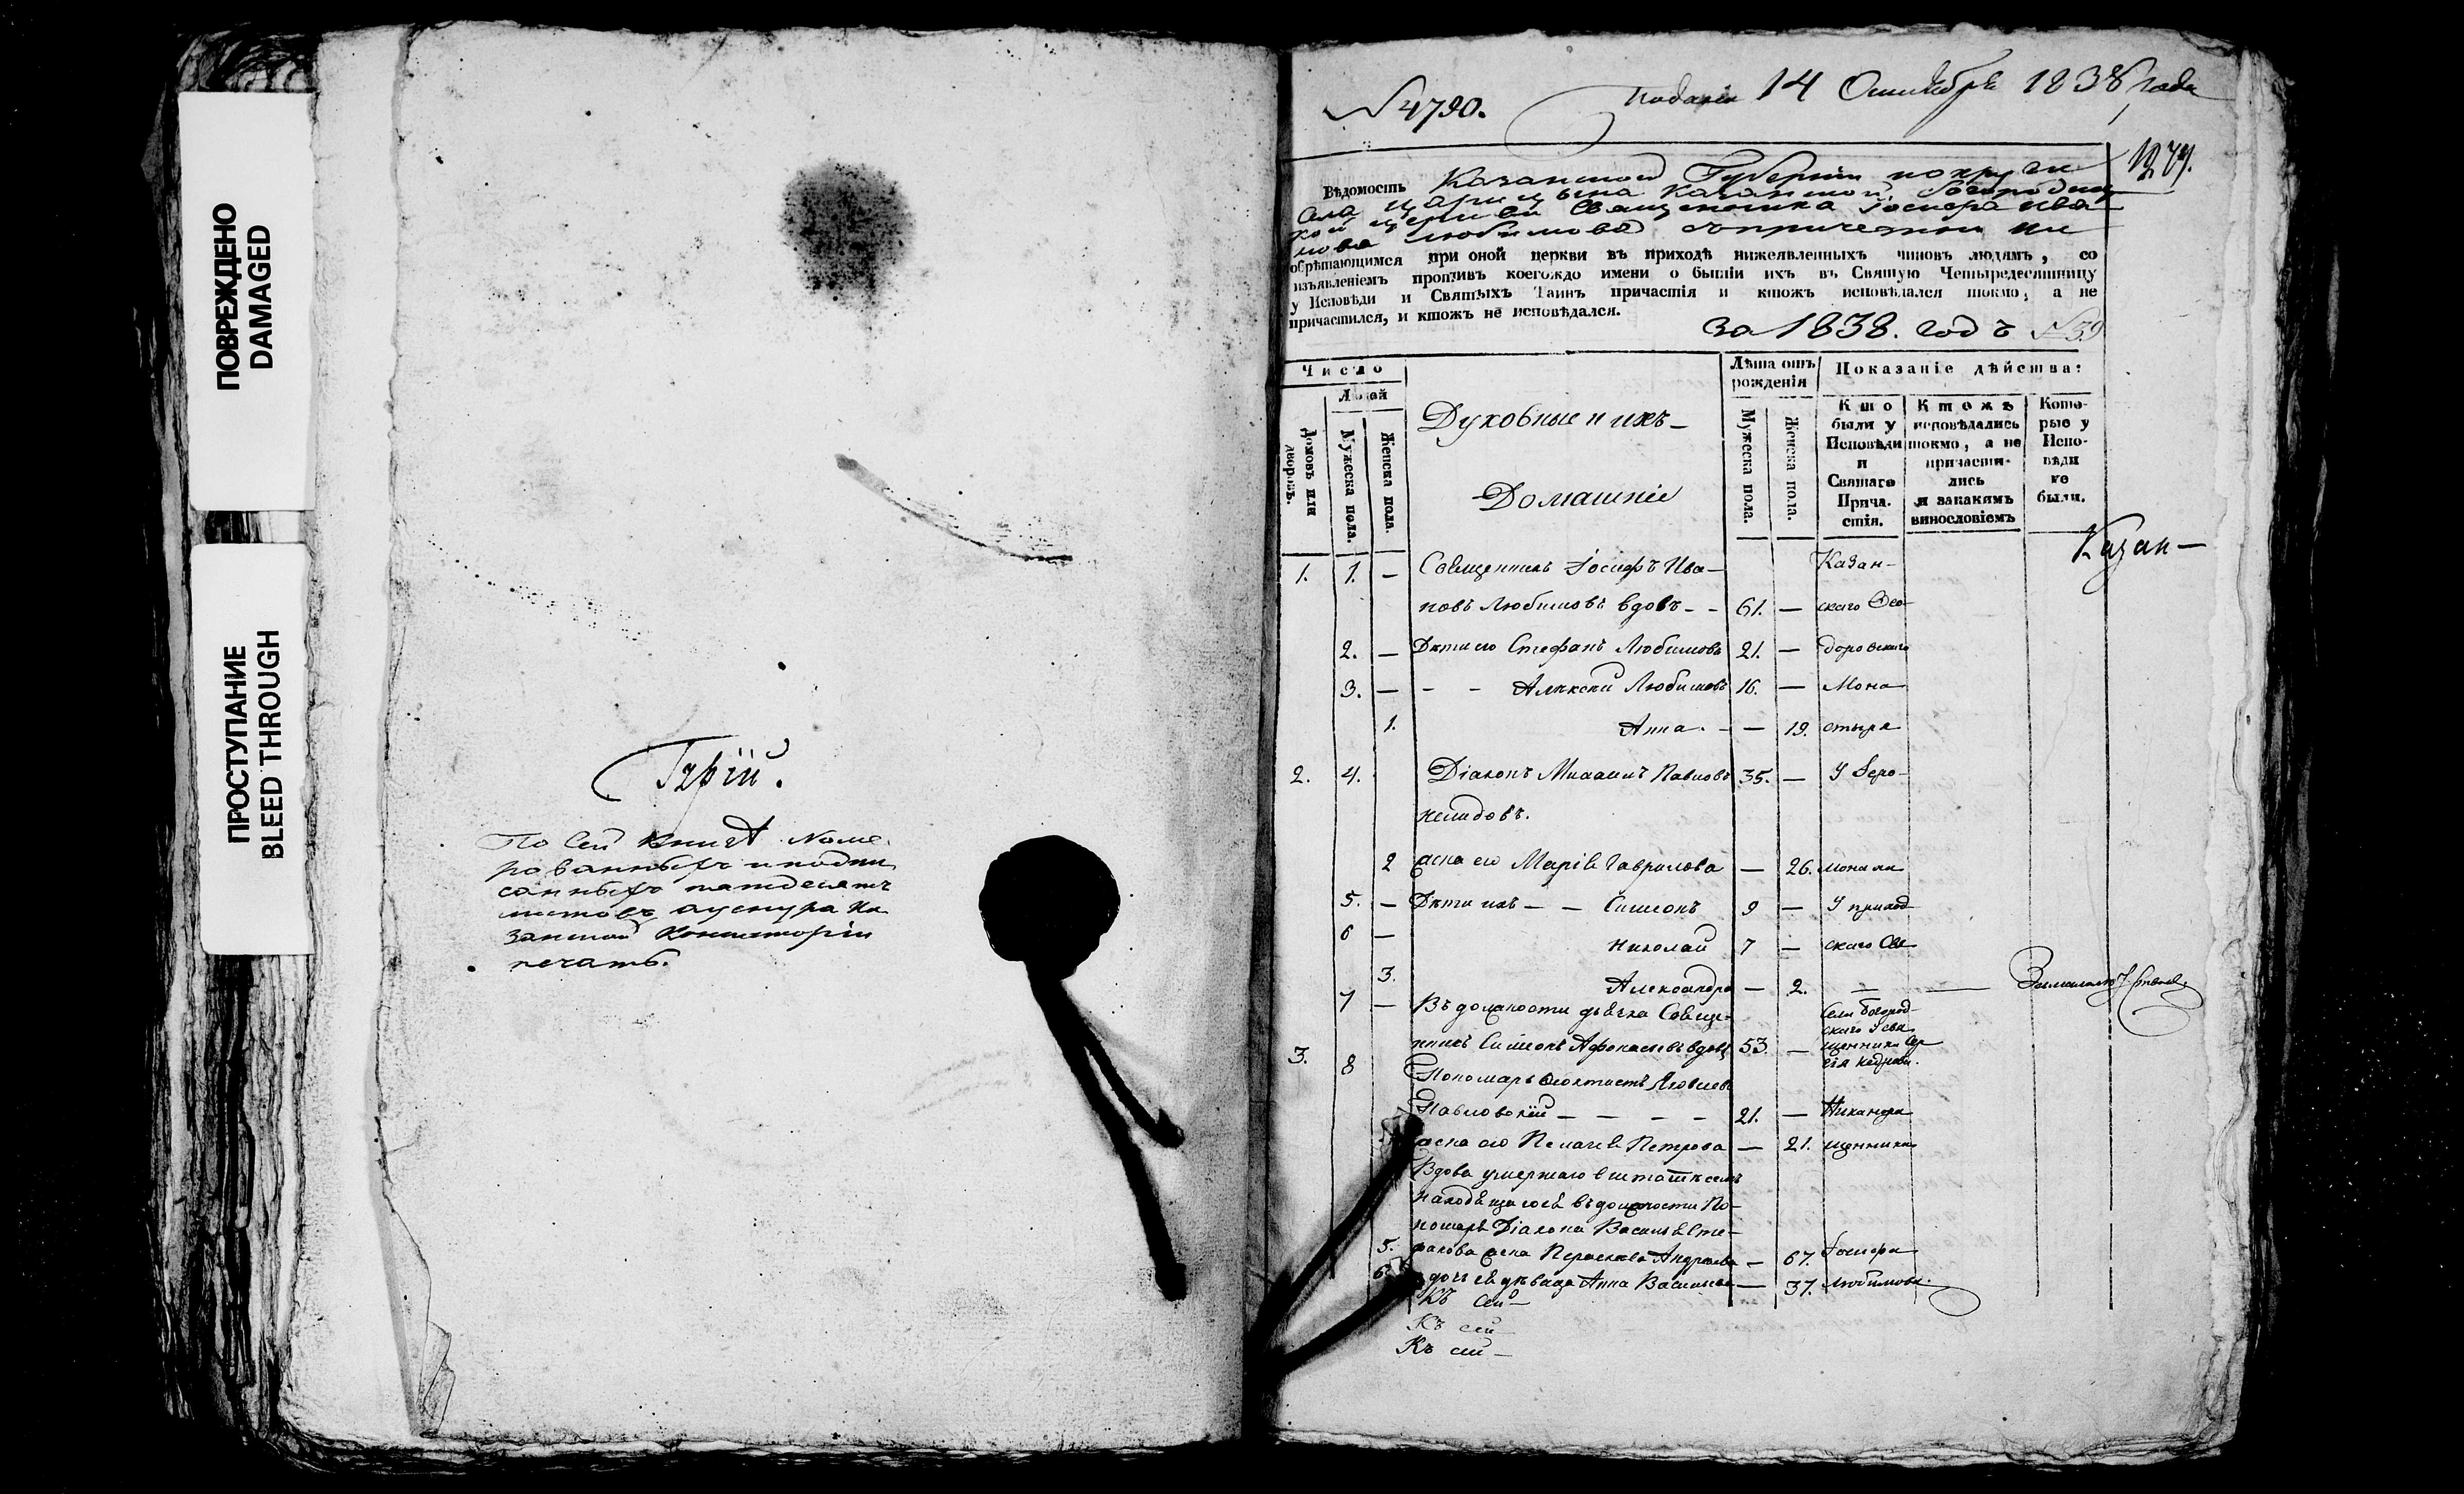 ПОВРЕЖДЕНО
DAMAGED
ПРОСТУПАНИЕ
BLEED THROUGH
По сей книгѣ номе
рованныхъ и подпи
санныхъ
листовъ
занской Консисторіи
печать.
№ 4790.
14 Октября 1838 года
Вѣдомость Казанской Губерніи
села Царицына Казанской Богородиц
кой церкви Священника Іосифа Ива
нова Любимова съ причетники
обрѣтающимся при оной церкви въ приходѣ нижеявленныхъ чиновъ людямъ, со
изъявленіемъ противъ коегождо имени о бытіи ихъ въ Святую Четыредесятницу
у Исповѣди и Святыхъ Таинъ причастія и ктожъ исповѣдался токмо, а не
причастился, и ктожъ не исповѣдался.
за 1838. годъ
Число
Людей
Домовъ или дворовъ.
Мужеска пола.
Женска пола.
Духовные и ихъ
Домашніе
Лѣта отъ рожденія
Мужеска пола.
Женска пола.
Показаніе дѣйства:
Кто были у Исповѣди и Святаго Причастія.
Ктожъ исповѣдались токмо, а не причастились и за какимъ винословіемъ
Которые у Исповѣди не были.
Казан—
1. 1. — Священникъ Іосифъ Ива— Казан—
новъ Любимовъ вдовъ - - 61. — скаго Ѳео
2. — Дѣти его Стефанъ Любимовъ 21. — доровскаго
3. — - - Алексѣй Любимовъ 16. — Мона
1. Анна. - — 19. стыря
2. 4. Діаконъ Михаилъ Павловъ 35. — У Іеро—
2 Жена его Марія Гаврилова — 26. монаха
5. — Дѣти ихъ — — Симеонъ 9 — У приход
6 — Николай 7 — скаго Свя
3. Александра — 2. —
7 — Въ должности дьячка Священ—
никъ Симеонъ Афонасьевъ вдовъ 53. —
3. 8 Пономарь Ѳеоктистъ Яковлевъ
Павловскій — — — — 21. —
Жена его Пелагея Петрова — 21. щенника
Вдова умершаго въ штатѣ семъ
находящагося въ должности По—
номаря Діакона Василья Сте—
5. фанова жена Параскева Андреева — 67. Іосифа
6. дочь ея дѣвица Анна Васильева — 37. Любимова.
Къ сей—
Къ сей
Къ сей—